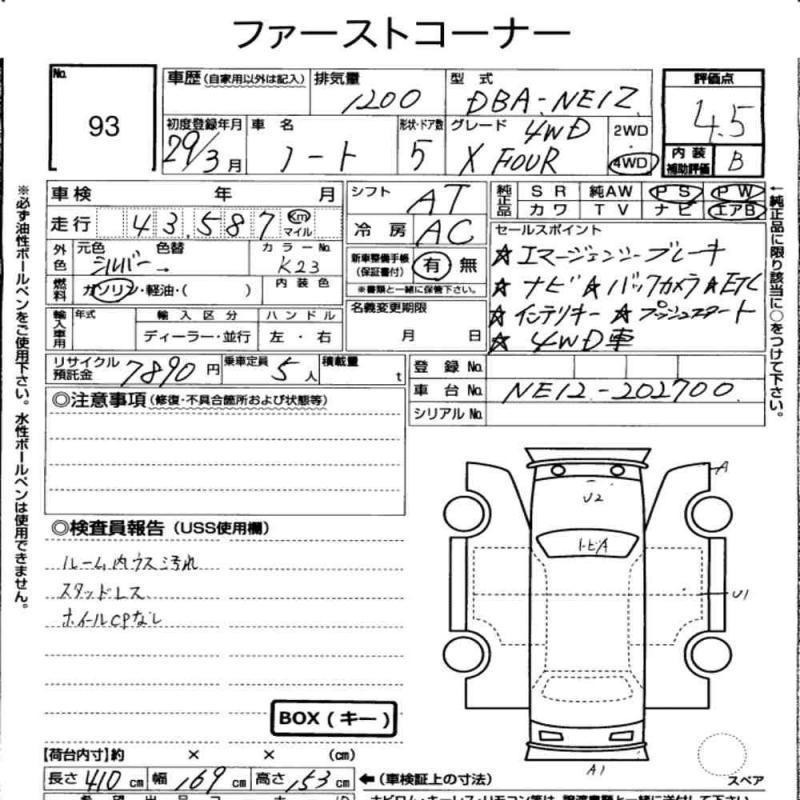 ファーストコーナー
No.
93
車歴 (自家用以外は記入)
排気量 1200
型式 DBA-NE12
評価点 4.5
初度登録年月 29/3月
車名 ノート
形状・ドア数 5
グレード 4WD
X FOUR
2WD
4WD
内装補助評価 B
車検 年 月
走行 43,587 Km マイル
外色 元色 シルバー 色替 → カラーNo. K23
燃料 ガソリン・軽油・( ) 内装色
輸入車用 年式 輸入区分 ハンドル
ディーラー・並行 左・右
シフト AT
冷房 AC
新車整備手帳 (保証書付) 有 無
※書類と一緒に保管下さい。
名義変更期限
月 日
純正品 SR 純AW PS PW
カワ TV ナビ エアB
セールスポイント
★エマージェンシーブレーキ
★ナビ ★バックカメラ ★ETC
★インテリキー ★プッシュスタート
★4WD車
リサイクル預託金 7890円 乗車定員 5人 積載量 t
登録No.
車台No. NE12-202700
シリアルNo.
◎注意事項 (修復・不具合箇所および状態等)
◎検査員報告 (USS使用欄)
ルーム内ウス汚れ
スタッドレス
ホイルCPなし
BOX (キー)
A
U2
トビA
U1
A1
スペア
【荷台内寸】約 × × (cm)
長さ 410 cm 幅 169 cm 高さ 153 cm
←(車検証上の寸法)
※必ず油性ボールペンをご使用下さい。水性ボールペンは使用できません。
←純正品に限り該当に○をつけて下さい。